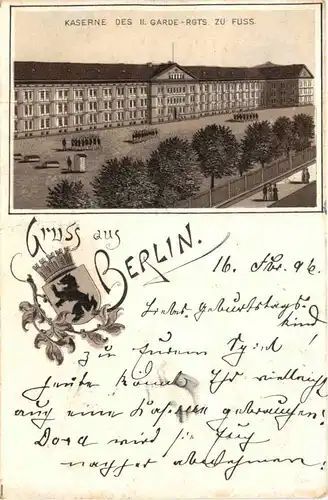 KASERNE DES II. GARDE-RGTS. ZU FUSS.
Gruss aus
BERLIN.
16. Fbr. 96.
Liebes Geburtstags-
kind!
Zu Eurem
heute könnt Ihr vielleicht
auch eine Kaserne gebrauchen!
Dora wird sie Euch
nachher abnehmen.